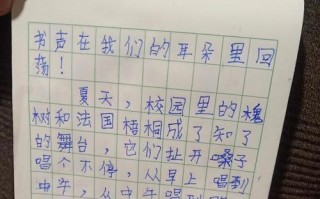 书声在我们的耳朵里回
荡！
夏天，校园里的槐
树和法国梧桐成了知了
的舞台，它们扯开嗓子
唱个不停，从早上唱到
中午，从中午唱到